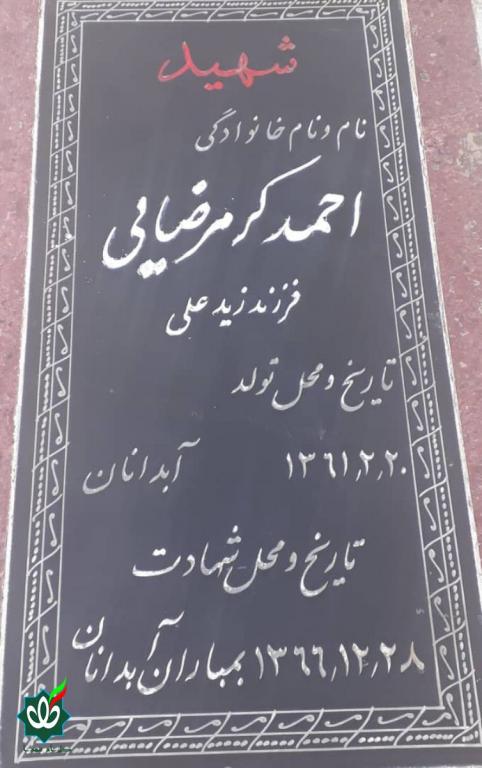 شهید
نام و نام خانوادگی
احمد کرمرضایی
فرزند زید علی
تاریخ و محل تولد
۱۳۶۱٫۲٫۲۰ آبدانان
تاریخ و محل شهادت
۱۳۶۶٫۱۲٫۲۸ بمباران آبدانان